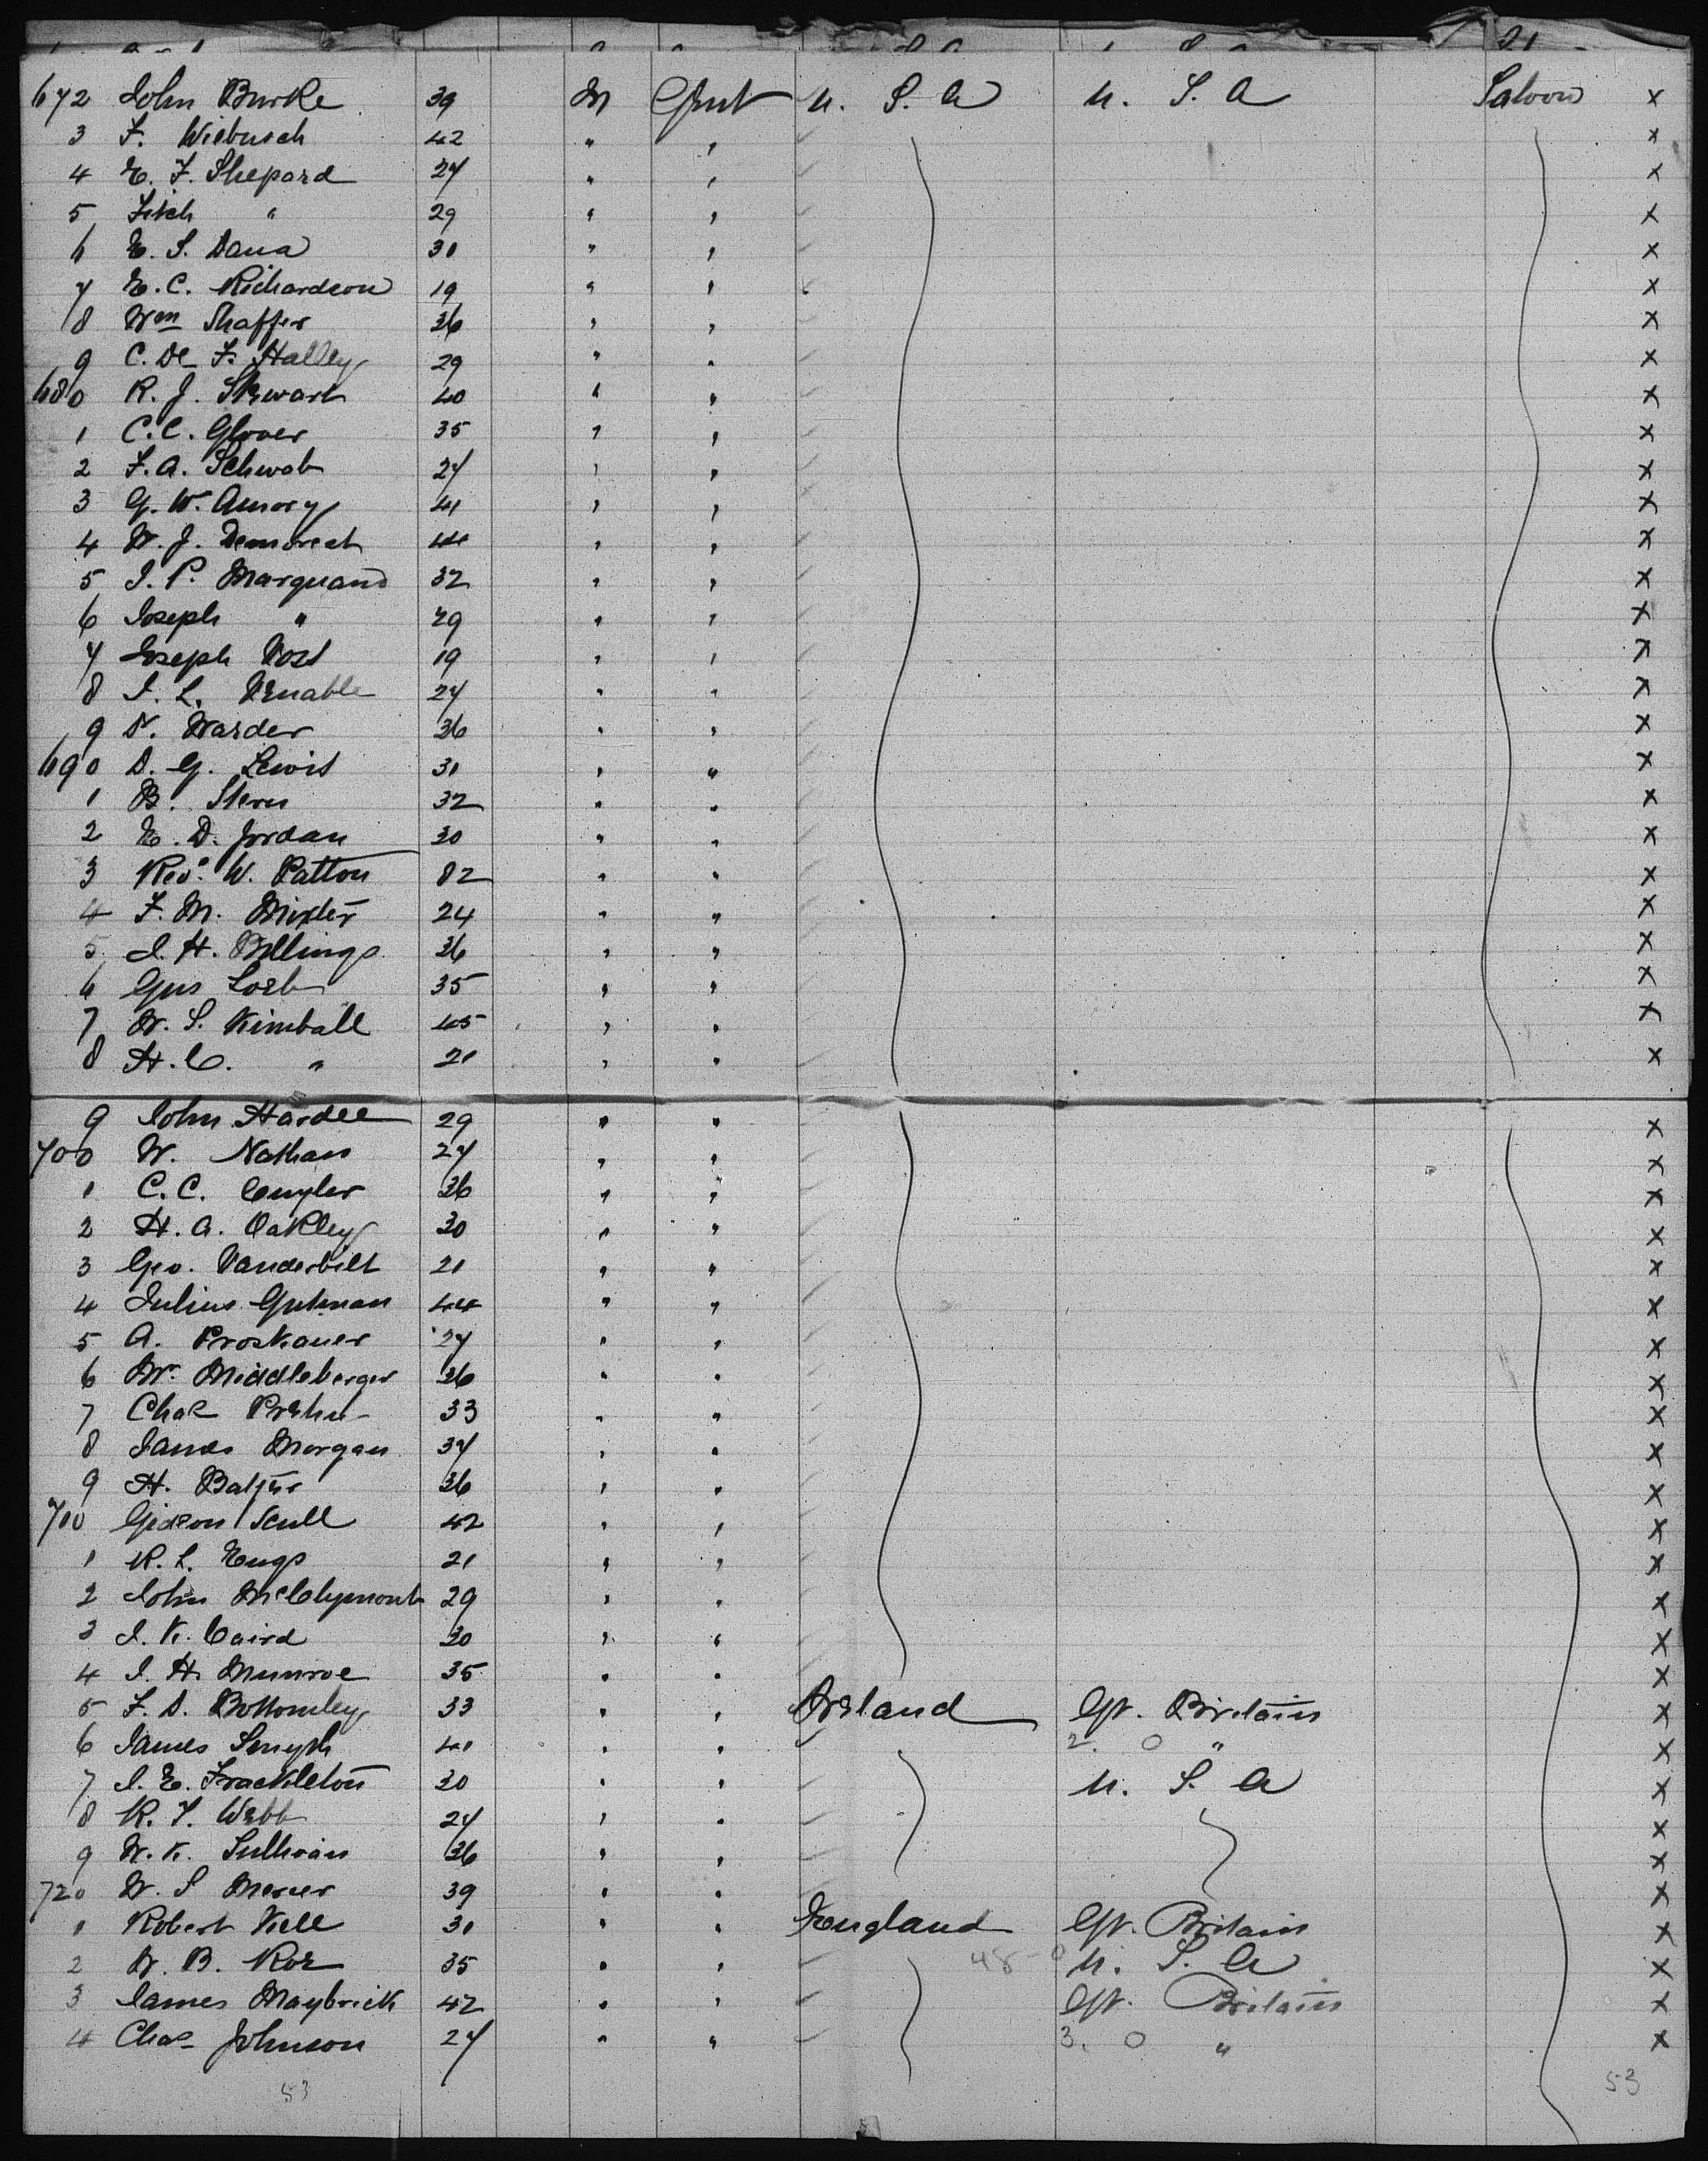 672 John Burke 39 M Gent U. S. A U. S. A Saloon x
3 F. Wiebusch 42 " " x
4 E. F. Shepard 27 " " x
5 Fitch " 29 " " x
6 E. S. Dana 31 " " x
7 E. C. Richardson 19 " " x
8 Wm Shaffer 36 " " x
9 C. De F. Halley 29 " " x
680 R. J. Stewart 40 " " x
1 C. C. Glover 35 " " x
2 F. A. Schwab 27 " " x
3 G. W. Amory 41 " " x
4 W. J. Demorest 44 " " x
5 J. P. Marquand 32 " " x
6 Joseph " 29 " " x
7 Joseph Vost 19 " " x
8 J. L. Venable 27 " " x
9 W. Warder 36 " " x
690 D. G. Lewis 31 " " x
1 B. Stern 32 " " x
2 E. D. Jordan 30 " " x
3 Rev. W. Patton 82 " " x
4 F. M. Mixter 24 " " x
5 J. H. Billings 36 " " x
6 Gus Loeb 35 " " x
7 W. S. Kimball 45 " " x
8 H. C. " 21 " " x
9 John Hardee 29 " " x
700 W. Nathan 27 " " x
1 C. C. Cuyler 36 " " x
2 H. A. Oakley 30 " " x
3 Geo. Vanderbilt 21 " " x
4 Julius Gutman 44 " " x
5 A. Proskauer 27 " " x
6 Mr. Middleberger 36 " " x
7 Chas Prehn 33 " " x
8 James Morgan 37 " " x
9 H. Baltzer 36 " " x
710 Gideon Scull 42 " " x
1 R. L. Engs 21 " " x
2 John McClymont 29 " " x
3 J. K. Caird 30 " " x
4 J. H. Munroe 35 " " x
5 F. D. Bottomley 33 " " Ireland Gt. Britain x
6 James Smyth 41 " " 2. 0 " x
7 J. E. Frackleton 30 " " U. S. A x
8 R. T. Webb 27 " " x
9 W. K. Sullivan 36 " " x
720 W. S Mercer 39 " " x
1 Robert Kell 31 " " England Gt. Britain x
2 W. B. Koe 35 " " 48-0 U. S. A x
3 James Maybrick 42 " " Gt. Britain x
4 Chas Johnson 27 " " 3. 0 " x
53 53